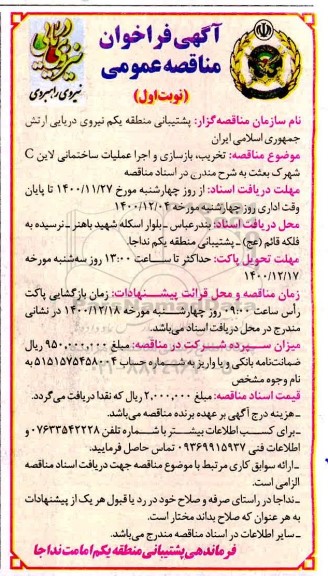 آگهی فراخوان
مناقصه عمومی
(نوبت اول)
نیروی دریایی
نیروی راهبردی
نام سازمان مناقصه‌گزار: پشتیبانی منطقه یکم نیروی دریایی ارتش
جمهوری اسلامی ایران
موضوع مناقصه: تخریب، بازسازی و اجرا عملیات ساختمانی لاین C
شهرک بعثت به شرح مندرج در اسناد مناقصه
مهلت دریافت اسناد: از روز چهارشنبه مورخ ۱۴۰۰/۱۱/۲۷ تا پایان
وقت اداری روز چهارشنبه مورخه ۱۴۰۰/۱۲/۰۴
محل دریافت اسناد: بندرعباس ـ بلوار اسکله شهید باهنر ـ نرسیده به
فلکه قائم (عج) ـ پشتیبانی منطقه یکم نداجا.
مهلت تحویل پاکت: حداکثر تا ساعت ۱۳:۰۰ روز سه‌شنبه مورخه
۱۴۰۰/۱۲/۱۷
زمان مناقصه و محل قرائت پیشنهادات: زمان بازگشایی پاکت
رأس ساعت ۰۹:۰۰ روز چهارشنبه مورخه ۱۴۰۰/۱۲/۱۸ در نشانی
مندرج در محل دریافت اسناد می‌باشد.
میزان سپرده شرکت در مناقصه: مبلغ ۹۵۰,۰۰۰,۰۰۰ ریال
ضمانت‌نامه بانکی و یا واریز به شماره حساب ۵۱۵۱۵۷۵۴۵۸۰۰۴ به
نام وجوه مشخص
قیمت اسناد مناقصه: مبلغ ۲,۰۰۰,۰۰۰ ریال که نقدا دریافت می‌گردد.
ـ هزینه درج آگهی بر عهده برنده مناقصه می‌باشد.
ـ برای کسب اطلاعات بیشتر با شماره تلفن ۰۷۶۳۳۵۴۲۲۲۸ و
اطلاعات فنی ۰۹۳۶۹۹۱۵۹۳۷ تماس حاصل فرمایید.
ـ ارائه سوابق کاری مرتبط با موضوع مناقصه جهت دریافت اسناد مناقصه
الزامی است.
ـ نداجا در راستای صرفه و صلاح خود در رد یا قبول هر یک از پیشنهادات
به هر عنوان که صلاح بداند مختار است.
ـ سایر اطلاعات در اسناد مناقصه مندرج می‌باشد.
فرماندهی پشتیبانی منطقه یکم امامت نداجا